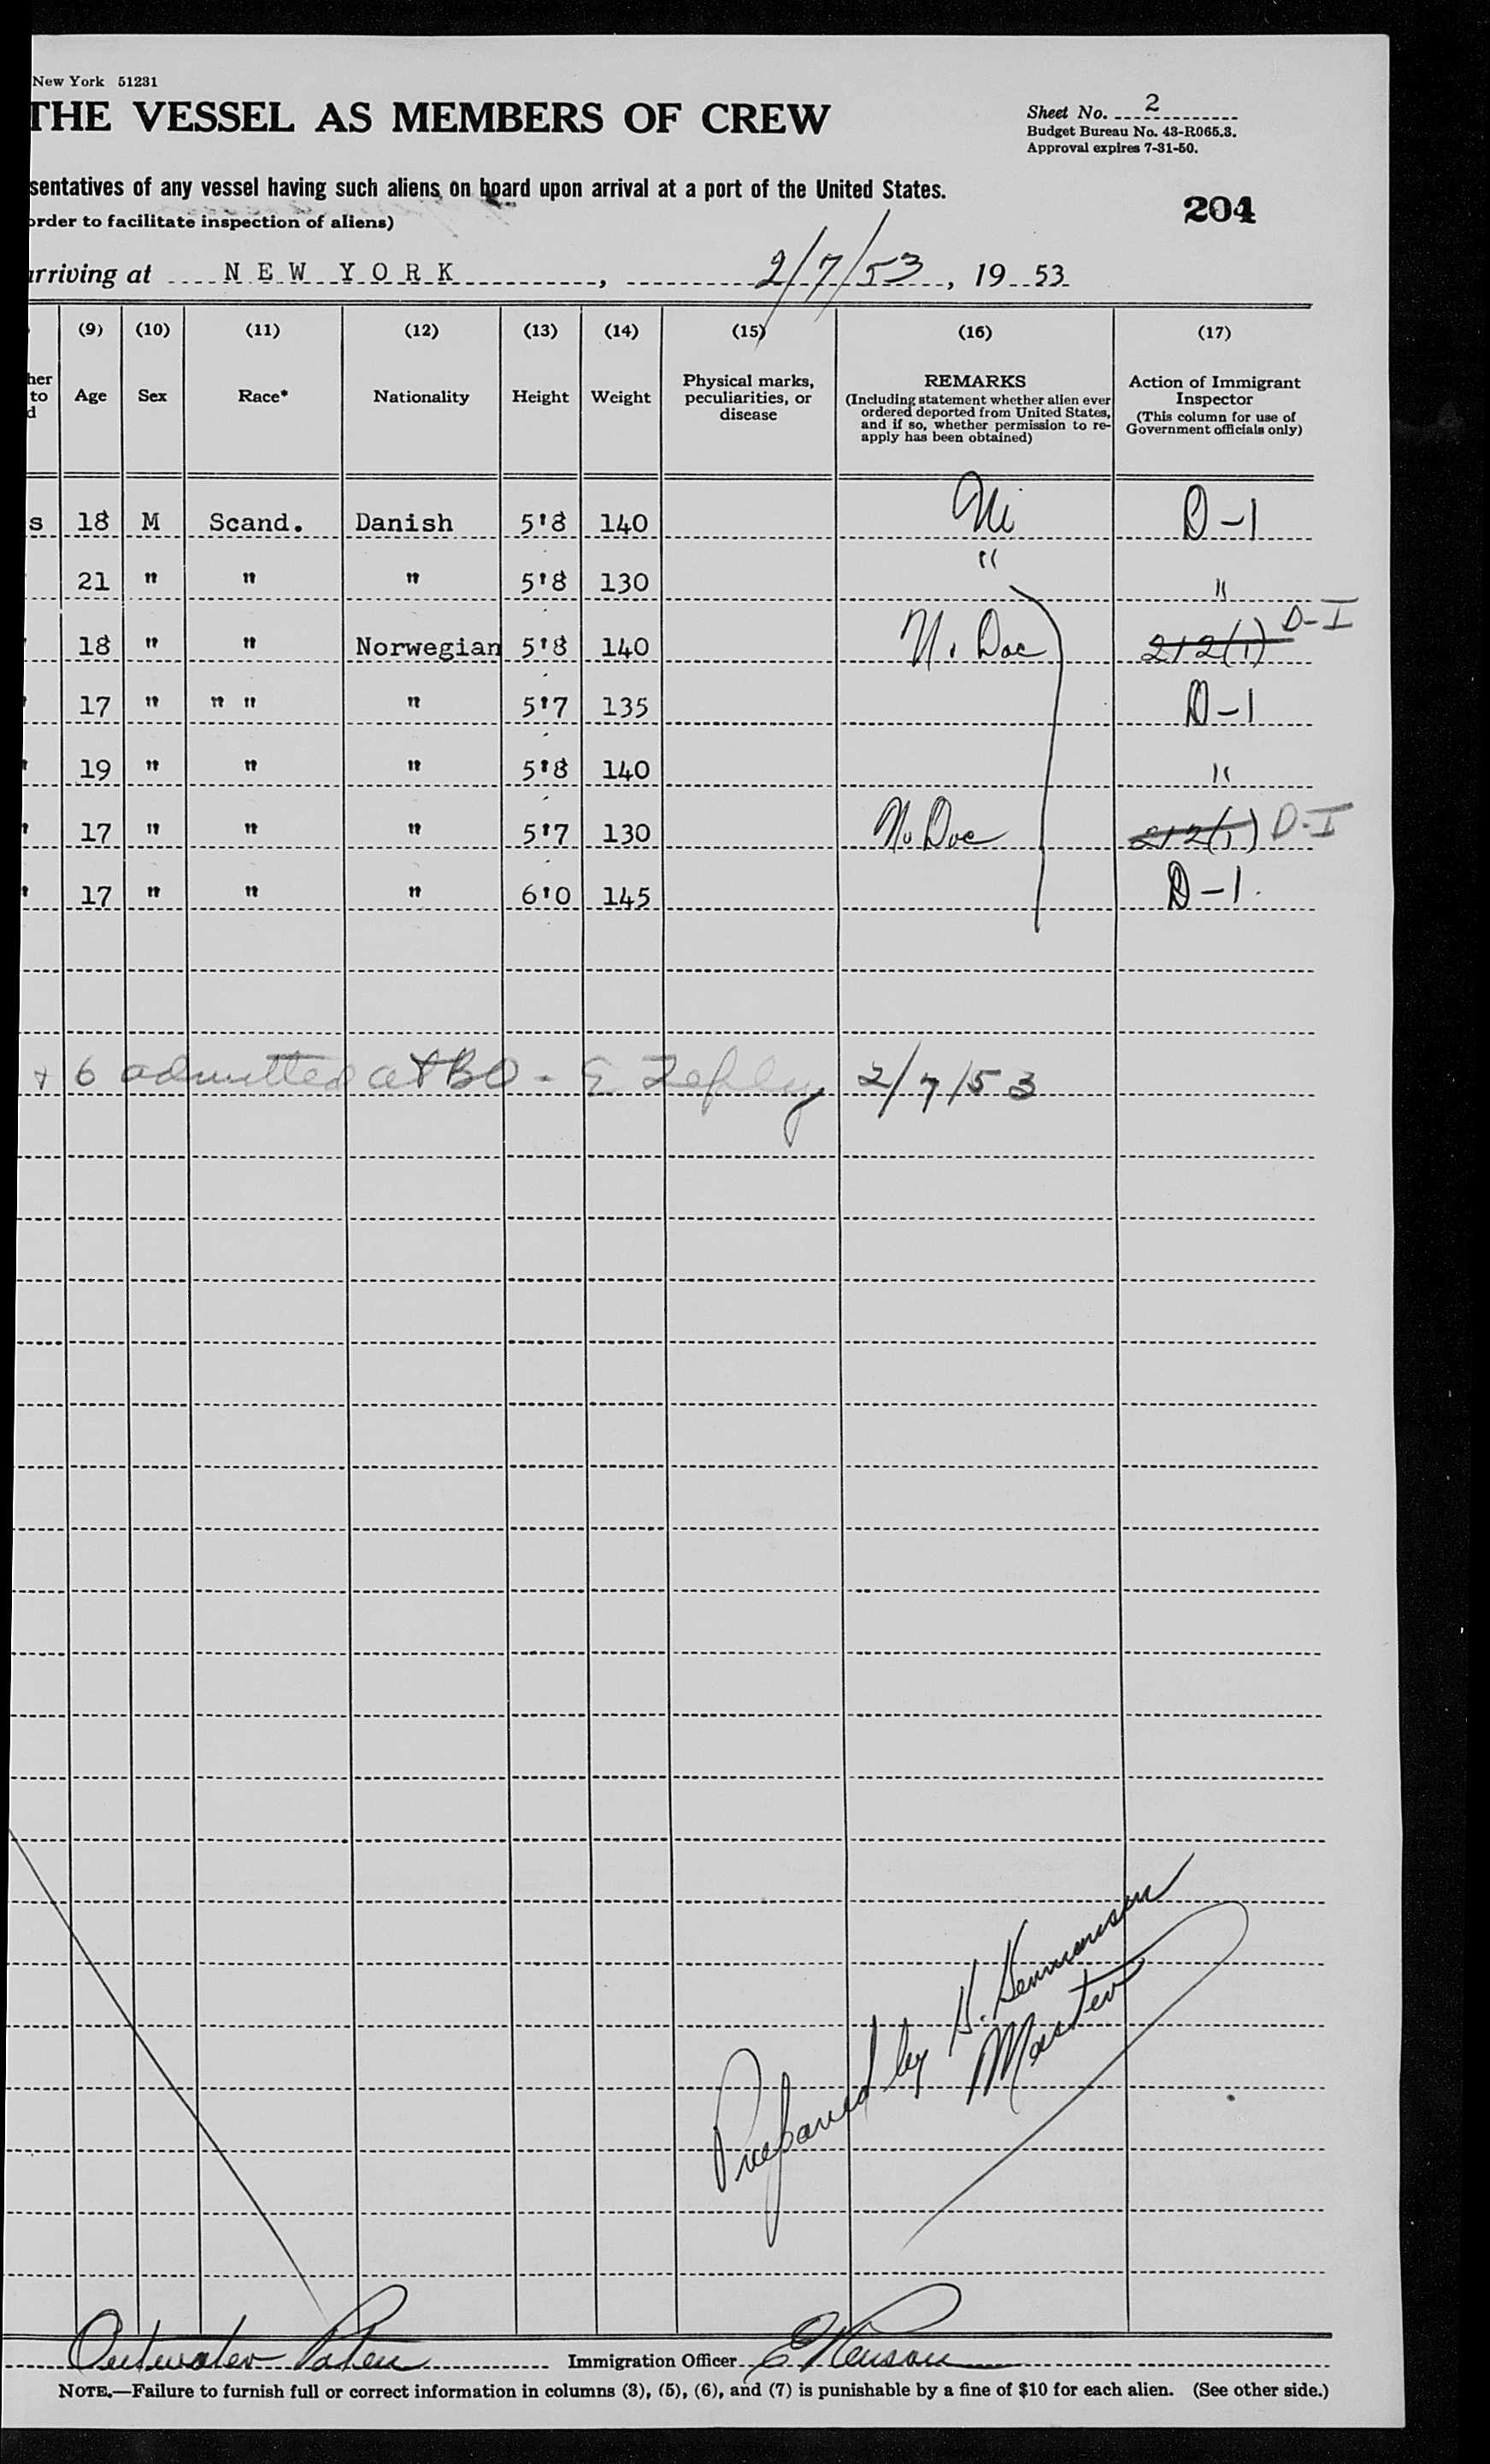 New York 51231
THE VESSEL AS MEMBERS OF CREW
Sheet No. 2
Budget Bureau No. 43-R065.3.
Approval expires 7-31-50.
sentatives of any vessel having such aliens on board upon arrival at a port of the United States.
204
order to facilitate inspection of aliens)
arriving at NEW YORK, 2/7/53, 19 53
(9) (10) (11) (12) (13) (14) (15) (16) (17)
her to d Age Sex Race* Nationality Height Weight Physical marks, peculiarities, or disease REMARKS (Including statement whether alien ever ordered deported from United States, and if so, whether permission to re-apply has been obtained) Action of Immigrant Inspector (This column for use of Government officials only)
s 18 M Scand. Danish 5'8 140 D-1
21 " " " 5'8 130 " "
18 " " Norwegian 5'8 140 No Doc 212(1) D-I
17 " " " " 5'7 135 D-1
19 " " " 5'8 140 "
17 " " " 5'7 130 No Doc 212(1) D-I
17 " " " 6'0 145 D-1.
+ 6 admitted at BO - E 2/7/53
Prepared by H. Hemmensen
Master
Immigration Officer
NOTE.—Failure to furnish full or correct information in columns (3), (5), (6), and (7) is punishable by a fine of $10 for each alien. (See other side.)